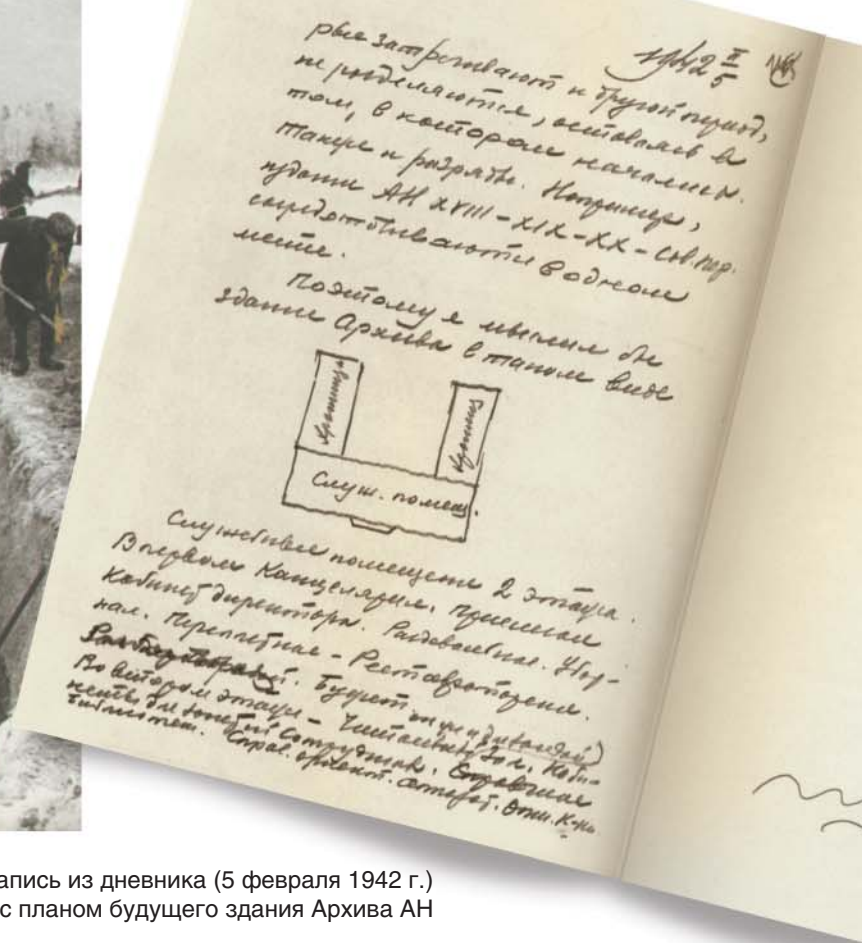 1942 II/5
рые затрагивают и другой период,
не разделяются, оставаясь в
том, в котором начались.
Такие и разряды. Например,
издания АН XVIII – XIX – XX – Сов. пер.
сосредотачиваются в одном
месте.
Поэтому я мыслил бы
здание Архива в таком виде
Хранилищ
Хранилищ
Служ. помещ.
Служебные помещения 2 этажа.
В первом Канцелярия. Приемная
Кабинет директора. Раздевальная. Убор-
ная. Переплетная – Реставрационная.
Буфет
Во втором этаже – Читальный зал, Каби-
неты для занятий сотрудников. Справочная
библиотека. Справ.
апись из дневника (5 февраля 1942 г.)
с планом будущего здания Архива АН